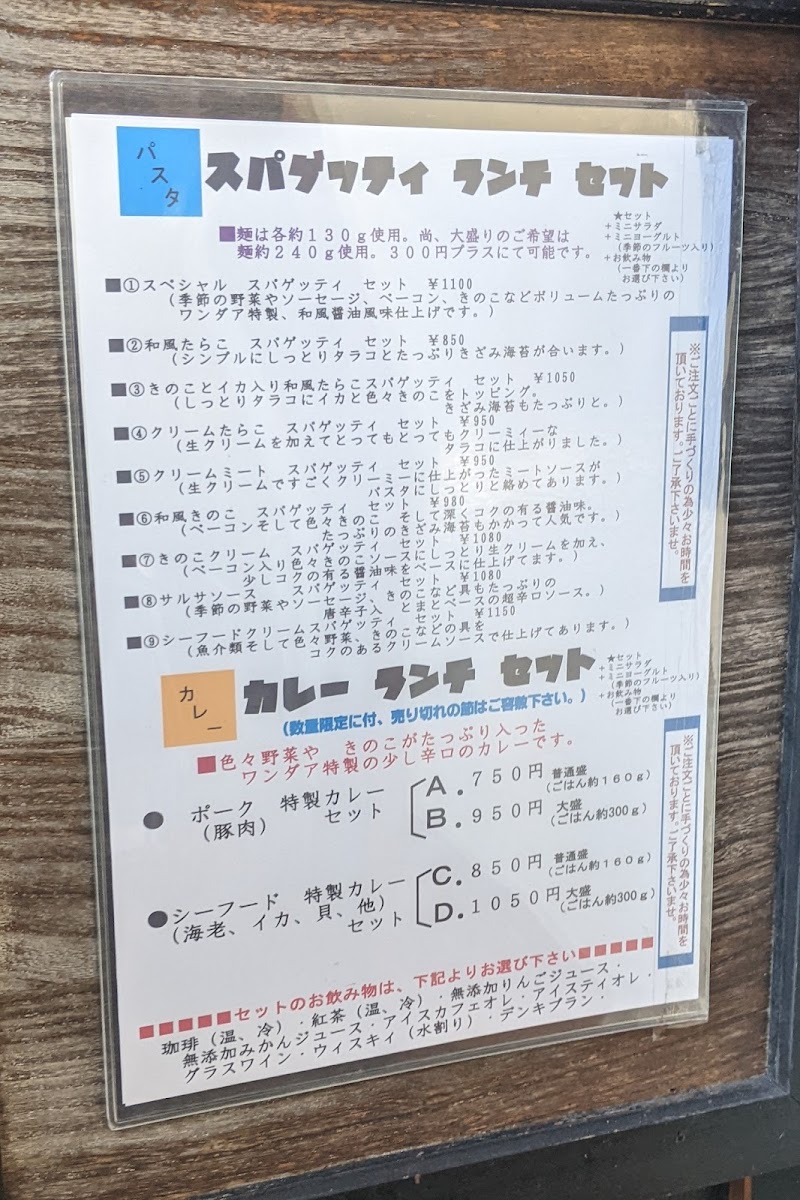 パスタ
スパゲッティ ランチ セット
■麺は各約130g使用。尚、大盛りのご希望は
麺約240g使用。300円プラスにて可能です。
★セット
+ミニサラダ
+ミニヨーグルト
(季節のフルーツ入り)
+お飲み物
(一番下の欄より
お選び下さい)
■①スペシャル スパゲッティ セット ￥1100
(季節の野菜やソーセージ、ベーコン、きのこなどボリュームたっぷりの
ワンダア特製、和風醤油風味仕上げです。)
■②和風たらこ スパゲッティ セット ￥850
(シンプルにしっとりタラコとたっぷりきざみ海苔が合います。)
■③きのことイカ入り和風たらこスパゲッティ セット ￥1050
(しっとりタラコにイカと色々きのこをトッピング。
きざみ海苔もたっぷりと。)
■④クリームたらこ スパゲッティ セット ￥950
(生クリームを加えてとってもとってもクリーミィーな
タラコに仕上がりました。)
■⑤クリームミート スパゲッティ セット ￥950
(生クリームですごくクリーミーに仕上がったミートソースが
パスタにしっとりと絡めてあります。)
■⑥和風きのこ スパゲッティ セット ￥980
(ベーコンそして色々きのこ そして深くコクの有る醤油味。
たっぷりのきざみ海苔もかかって人気です。)
■⑦きのこクリーム スパゲッティ セット ￥1080
(ベーコン入り色々きのこソースにしっとり生クリームを加え、
少しコクの有る醤油味をベースに仕上げてます。)
■⑧サルサソース スパゲッティ セット ￥1080
(季節の野菜やソーセージ、きのこなど具もたっぷりの
唐辛子入 とまとベースの超辛口ソース。)
■⑨シーフードクリームスパゲッティ セット ￥1150
(魚介類そして色々野菜、きのこなどの具を
コクのあるクリームソースで仕上げてあります。)
※ご注文ごとに手づくりの為少々お時間を
頂いております。ご了承下さいませ。
カレー
カレー ランチ セット
(数量限定に付、売り切れの節はご容赦下さい。)
★セット
+ミニサラダ
+ミニヨーグルト
(季節のフルーツ入り)
+お飲み物
(一番下の欄より
お選び下さい)
■色々野菜や きのこがたっぷり入った
ワンダア特製の少し辛口のカレーです。
● ポーク 特製カレー
(豚肉) セット
A.750円 普通盛
(ごはん約160g)
B.950円 大盛
(ごはん約300g)
●シーフード 特製カレー
(海老、イカ、貝、他) セット
C.850円 普通盛
(ごはん約160g)
D.1050円 大盛
(ごはん約300g)
※ご注文ごとに手づくりの為少々お時間を
頂いております。ご了承下さいませ。
■■■■■セットのお飲み物は、下記よりお選び下さい■■■■■
珈琲(温、冷)・紅茶(温、冷)・無添加りんごジュース・
無添加みかんジュース・アイスカフェオレ・アイスティオレ・
グラスワイン・ウィスキィ(水割り)・デンキブラン・